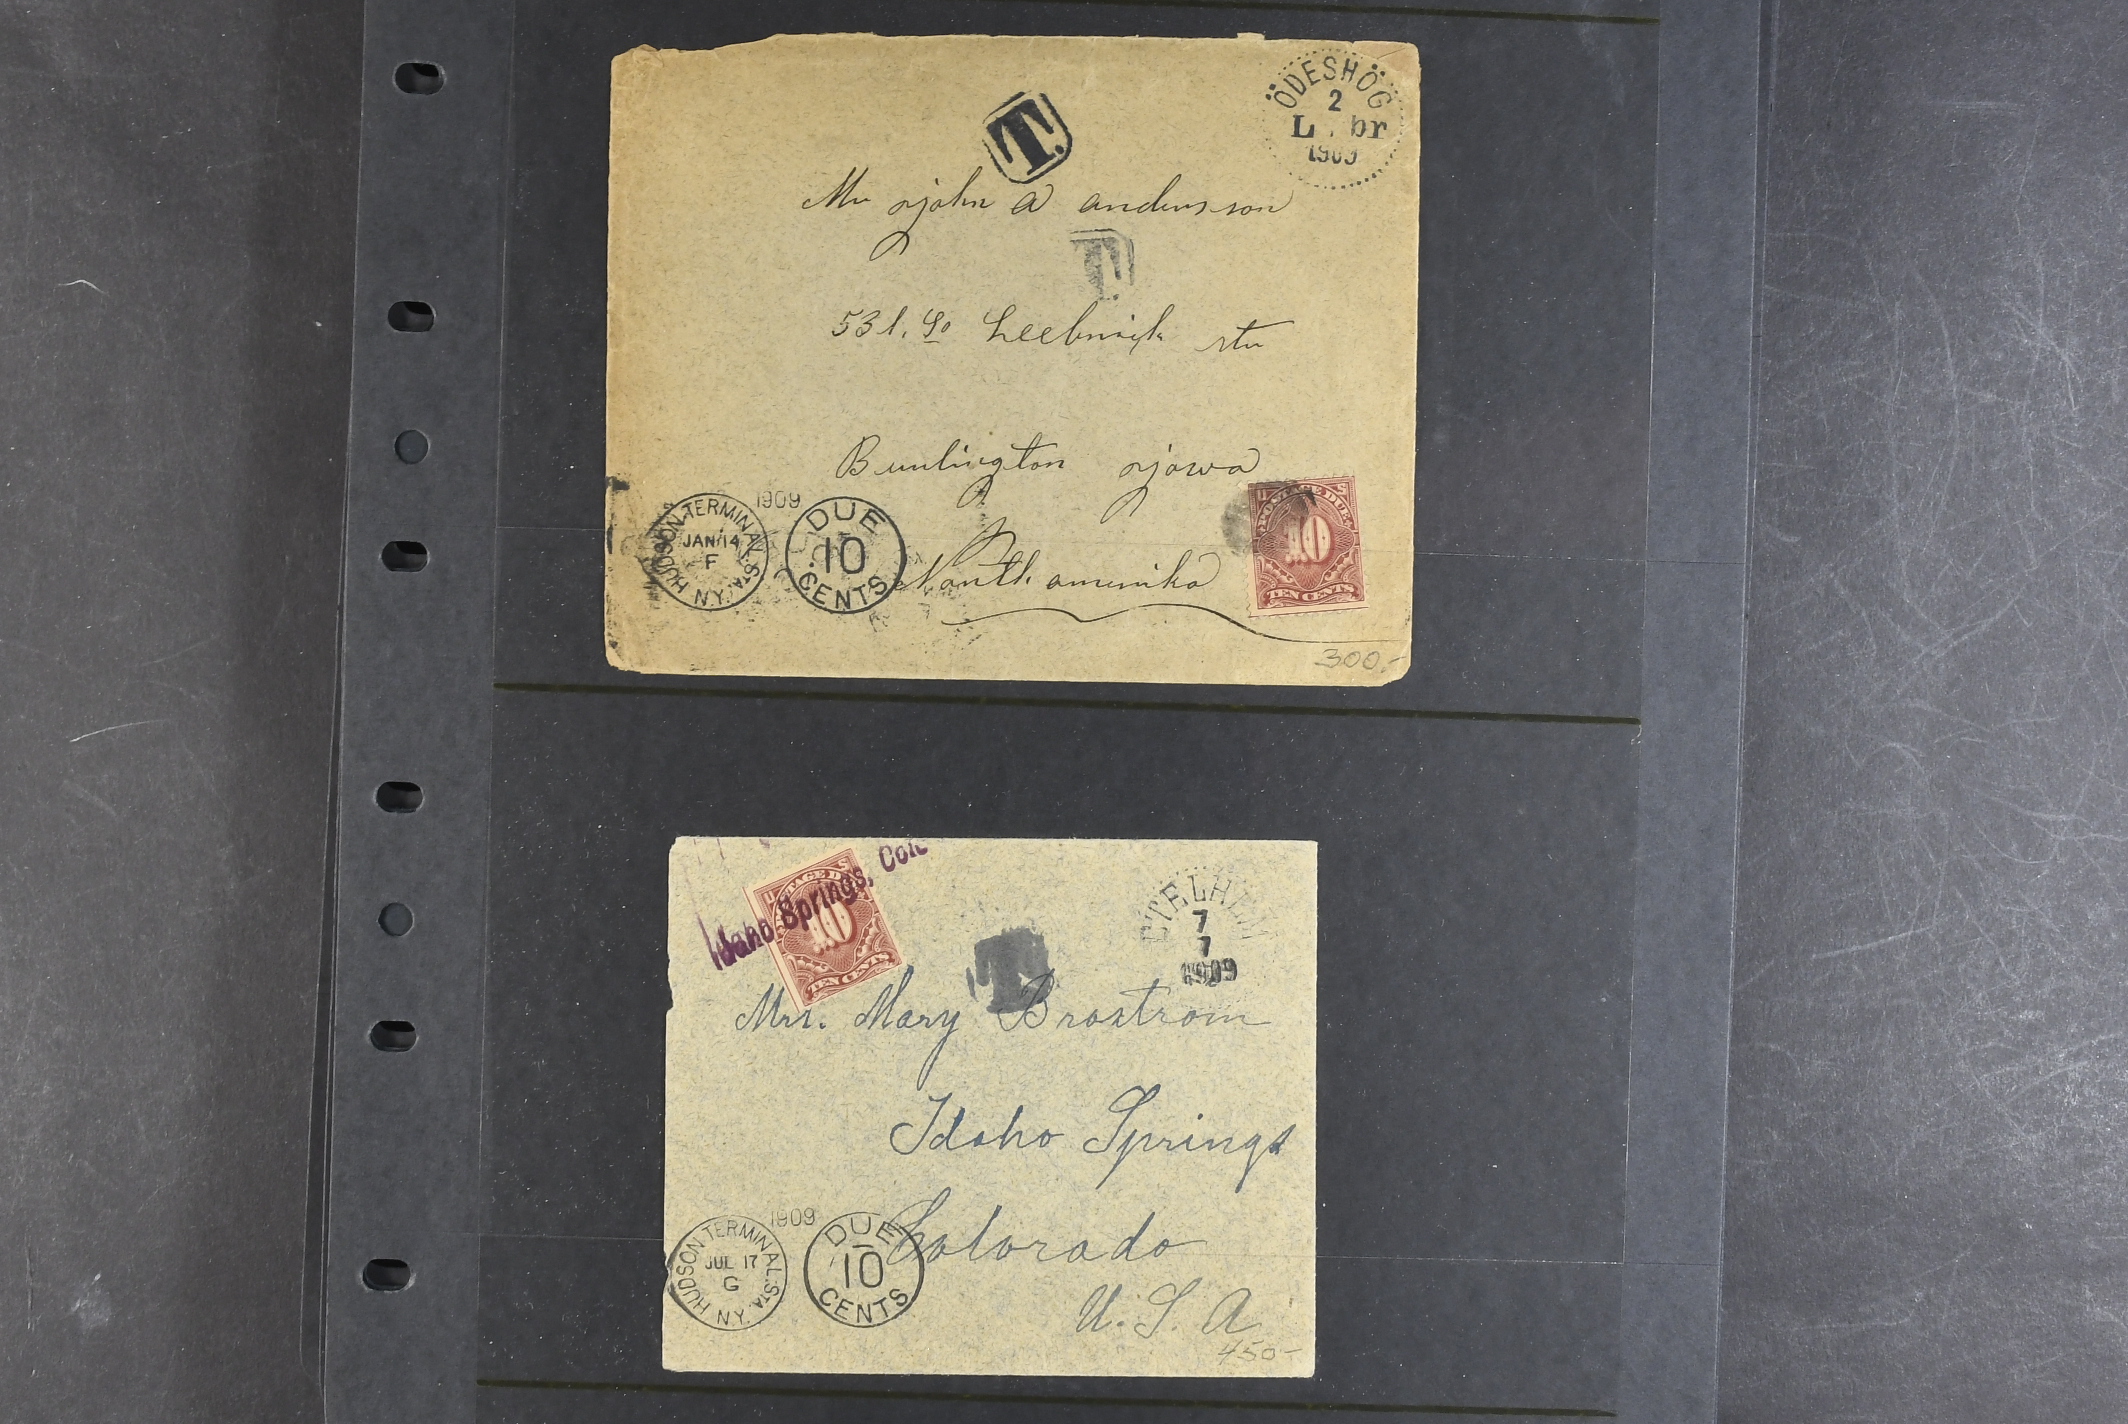 ÖDESHÖG
2
Lbr
1909
T.
Mr Sjohn A andersson
T.
531. So Leebrick str
Burlington Sjowa
North amerika
1909
HUDSON TERMINAL STA. N.Y.
JAN 14
F
DUE
10
CENTS
U S
POSTAGE DUE
10
TEN CENTS
300.-
Idaho Springs, Colo
U S
POSTAGE DUE
10
TEN CENTS
T
7
7
1909
Mrs. Mary Brostrom
Idaho Springs
Colorado
U. S. A
1909
HUDSON TERMINAL STA. N.Y.
JUL 17
G
DUE
10
CENTS
450-